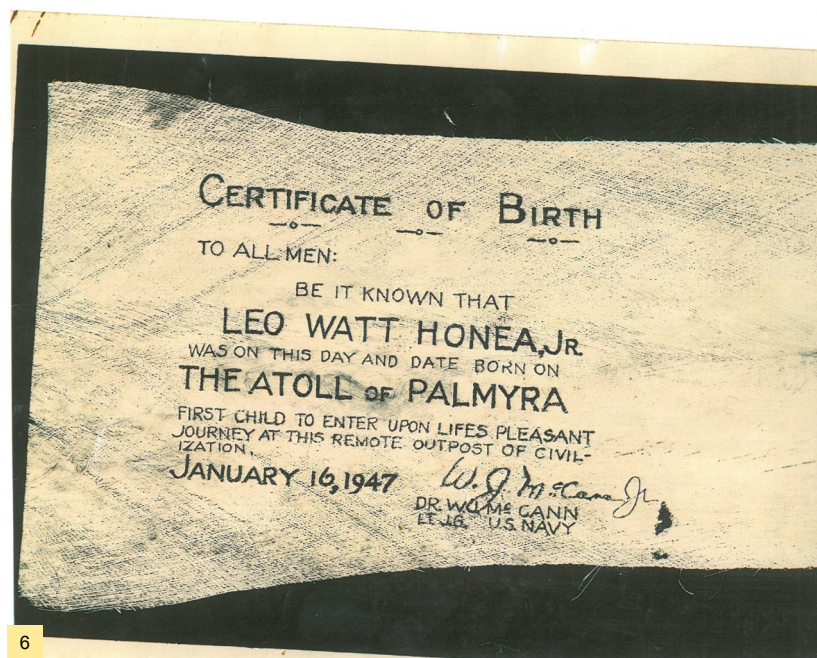 CERTIFICATE OF BIRTH
TO ALL MEN:
BE IT KNOWN THAT
LEO WATT HONEA, JR.
WAS ON THIS DAY AND DATE BORN ON
THE ATOLL OF PALMYRA
FIRST CHILD TO ENTER UPON LIFES PLEASANT
JOURNEY AT THIS REMOTE OUTPOST OF CIVIL-
IZATION.
JANUARY 16, 1947
W. J. McCann Jr.
DR. W.J. Mc CANN
LT. J.G. U.S. NAVY
6